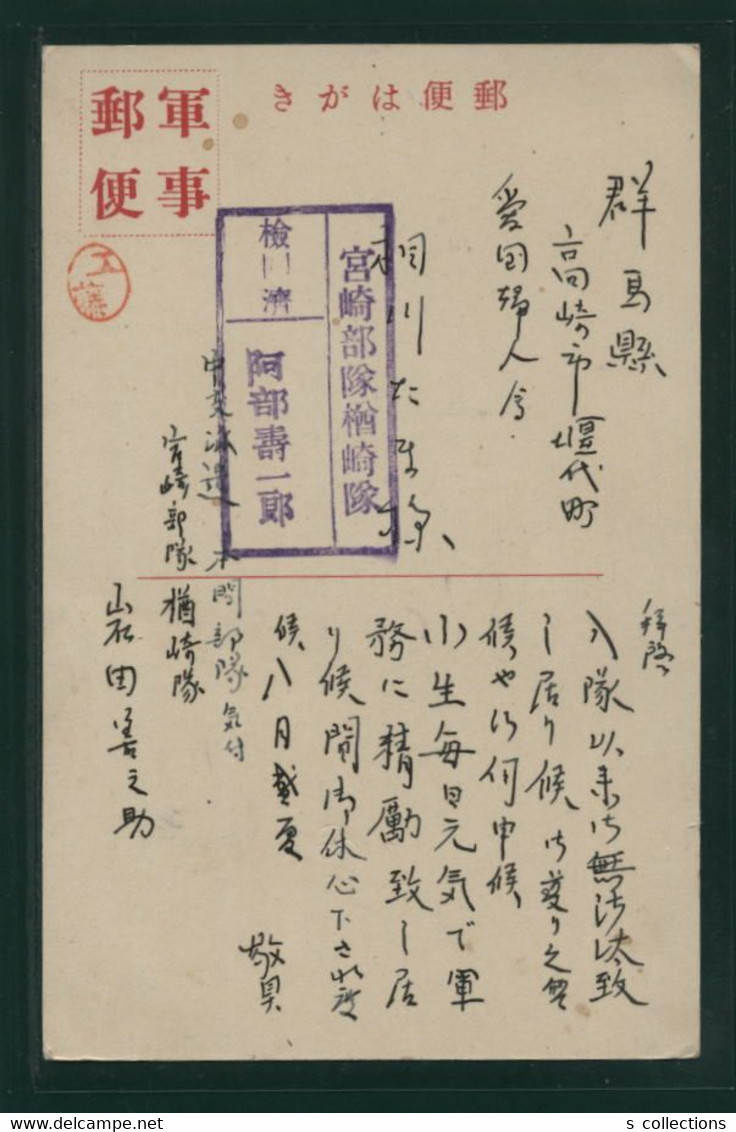 郵便はがき
軍事
郵便
群馬縣
高崎市堰代町
愛国婦人会
相川たま様
宮崎部隊楢崎隊
檢閲濟
阿部壽一郎
工藤
中支派遣 本間部隊気付
宮崎部隊 楢崎隊
岩田善之助
拝啓
入隊以来御無沙汰致
し居り候
候也 如何申候
小生毎日元気で軍
務に精勵致し居
り候間御休心下され度
候 八月盛夏
敬具
s collections